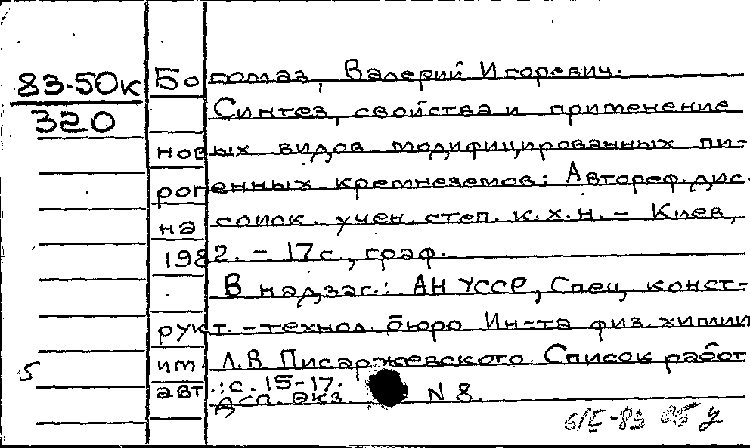 83-50к
320
Богомаз, Валерий Игоревич.
Синтез, свойства и применение
новых видов модифицированных пи-
рогенных кремнеземов: Автореф. дис.
на соиск. учен. степ. к.х.н. - Киев,
1982. - 17 с., граф.
В надзаг.: АН УССР, Спец. конст-
рукт. - технол. бюро Ин-та физ. химии
им Л.В Писаржевского Список работ
авт.: с. 15-17.
Дсп. Экз. N 8.
5